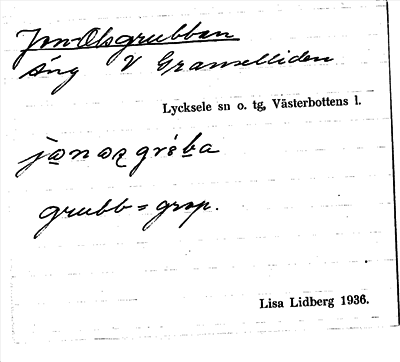 Jon-Olsgrubban
Äng V Granselliden
Lycksele sn o. tg, Västerbottens l.
grubb = grop.
Lisa Lidberg 1936.